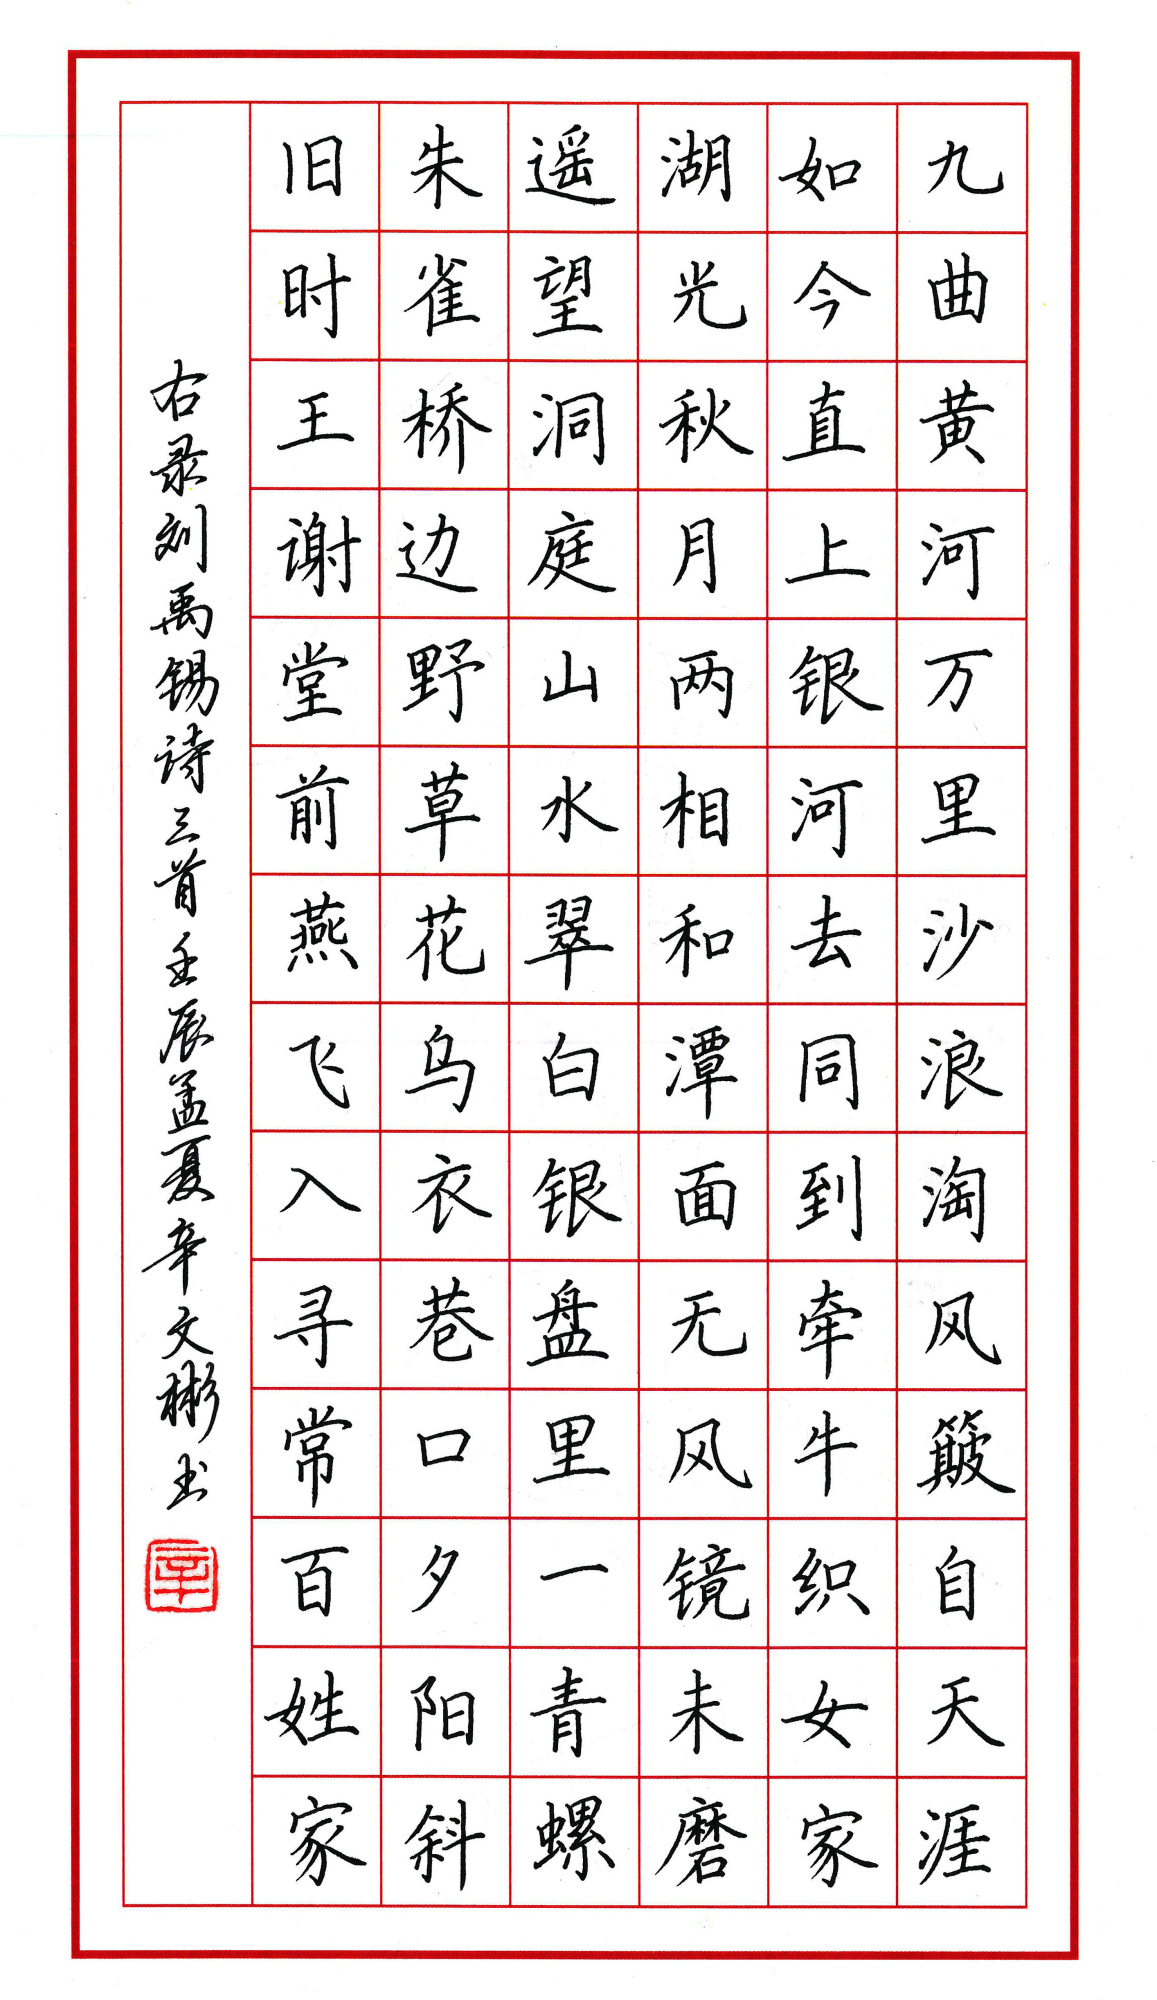 九曲黄河万里沙浪淘风簸自天涯
如今直上银河去同到牵牛织女家
湖光秋月两相和潭面无风镜未磨
遥望洞庭山水翠白银盘里一青螺
朱雀桥边野草花乌衣巷口夕阳斜
旧时王谢堂前燕飞入寻常百姓家
右录刘禹锡诗三首壬辰孟夏辛文彬书
辛